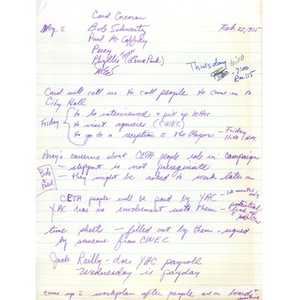 Carol Corcoran
Mtg. E Bob Schwartz Feb 25, 1975
Paul McCaffrey
Perry
Phyllis (Lena Park)
Thursday 6:00
- 7:00
Rm 115
Carol will call me to call people to come in to
City Hall
Friday
to be interviewed + put up
to visit agencies (CWEC)
to go to a reception the Mayor - Friday
11:00
Perry's concerns about CETA people role in campaign
- support is not prerequisite
- They might be asked to work later on
Bob
Paul
CETA people will be paid by YAC - 12 months only
YAC has no involvement with them - potential
time sheets - filled out by them - signed
by someone from CWEC
Jack Reilly - does YAC payroll
Wednesday is payday
come up workplan after people are on board